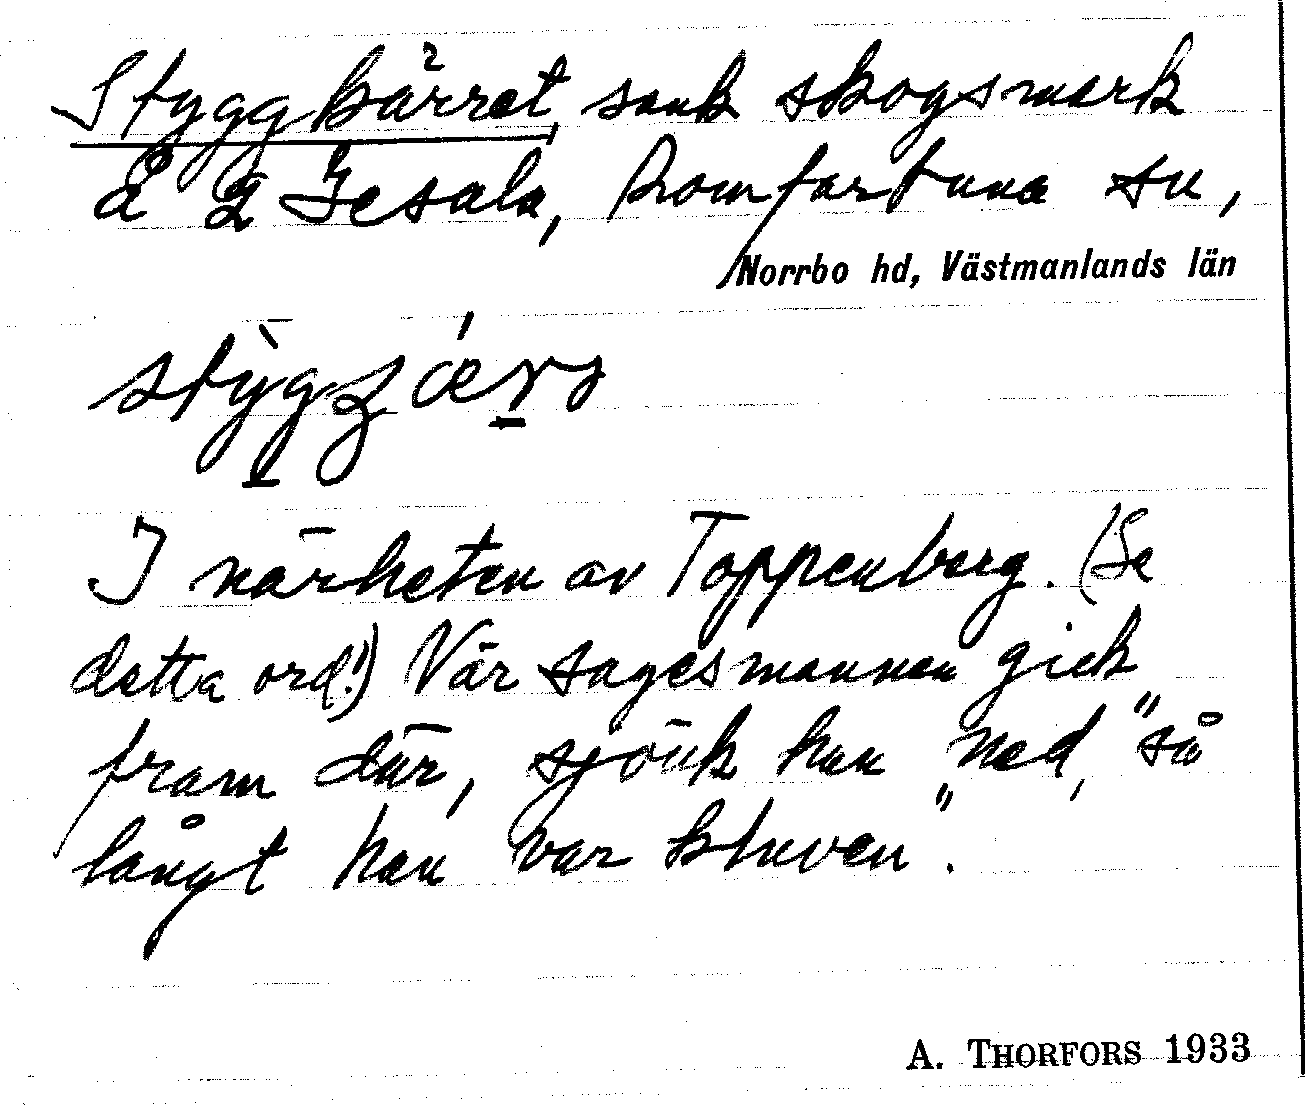 Styggkärret, sank skogsmark
å Gesala, Romfartuna sn,
Norrbo hd, Västmanlands län
I närheten av Toppenberg. (Se
detta ord!) När sagesmannen gick
fram där, sjönk han "ned, "så
långt han var kluven".
A. THORFORS 1933